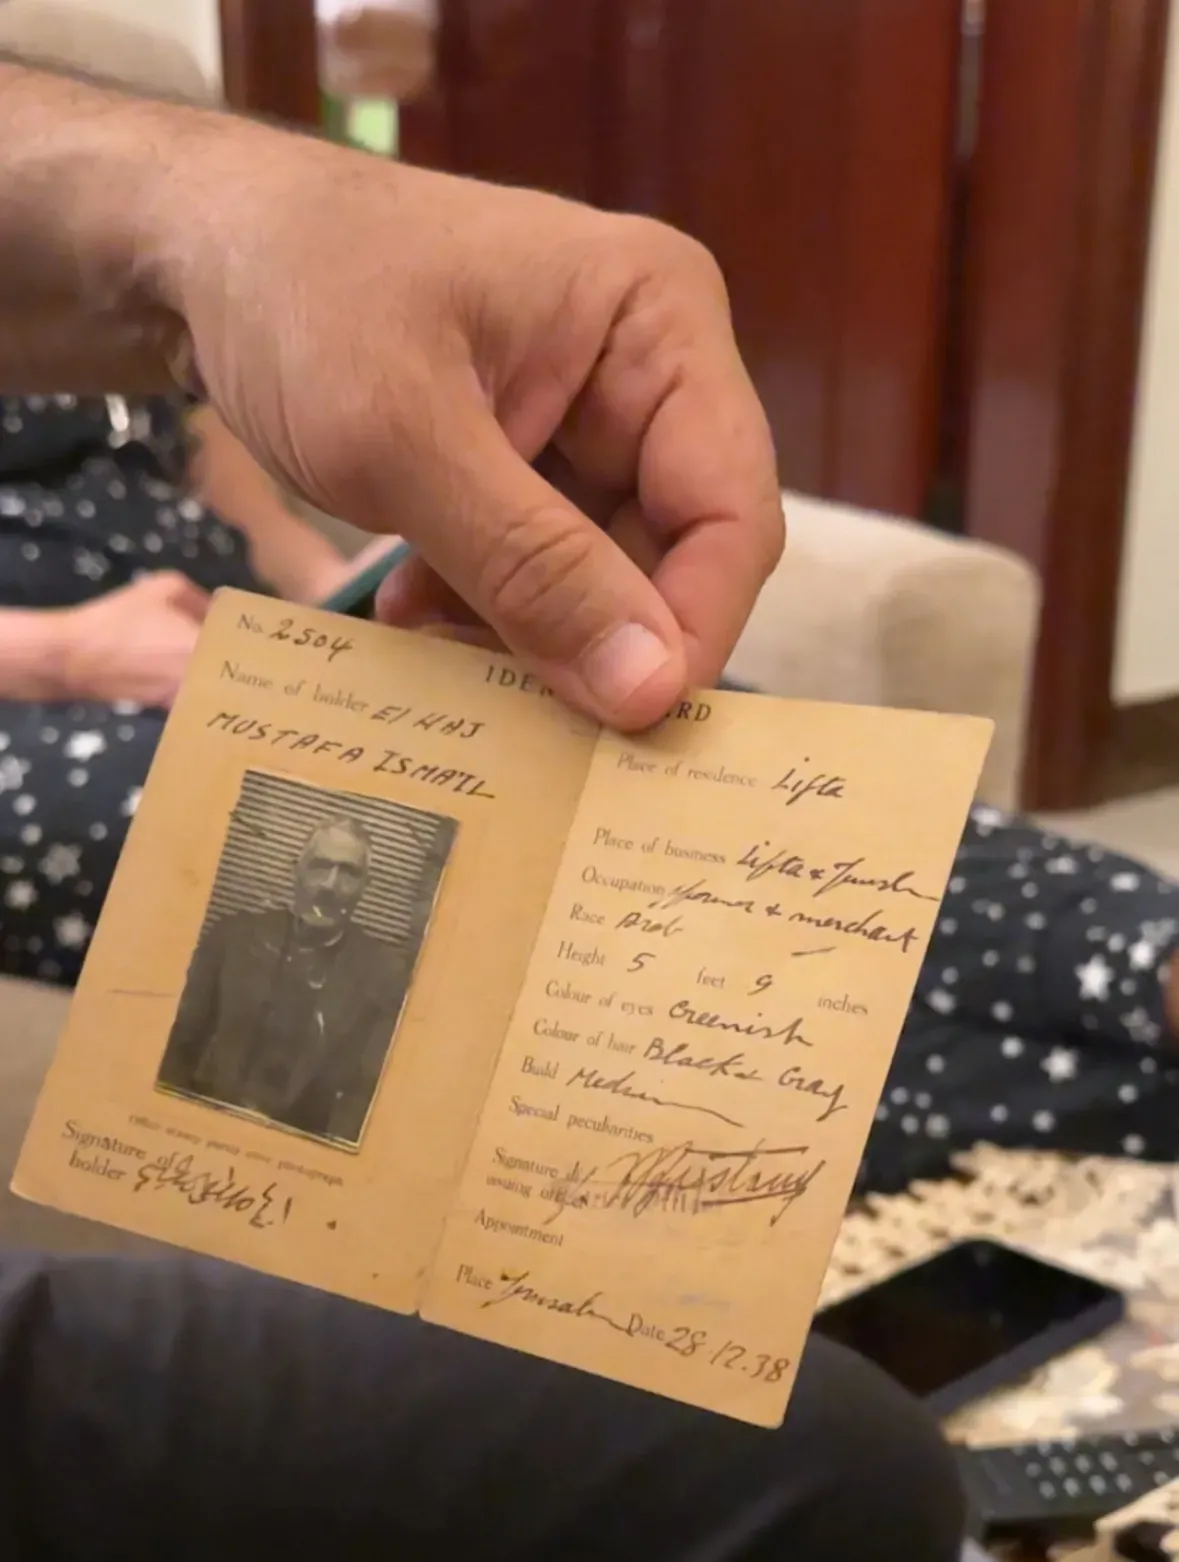 No. 2504
Name of holder El HAJ
MUSTAFA ISMAIL
Signature of
holder
IDEN RD
Place of residence Lifta
Place of business Lifta &
Occupation & merchant
Race Arab
Height 5 feet 9 inches
Colour of eyes Greenish
Colour of hair Black & Gray
Build Medium
Special peculiarities
Signature of
issuing officer
Appointment
Place Jerusalem Date 28.12.38